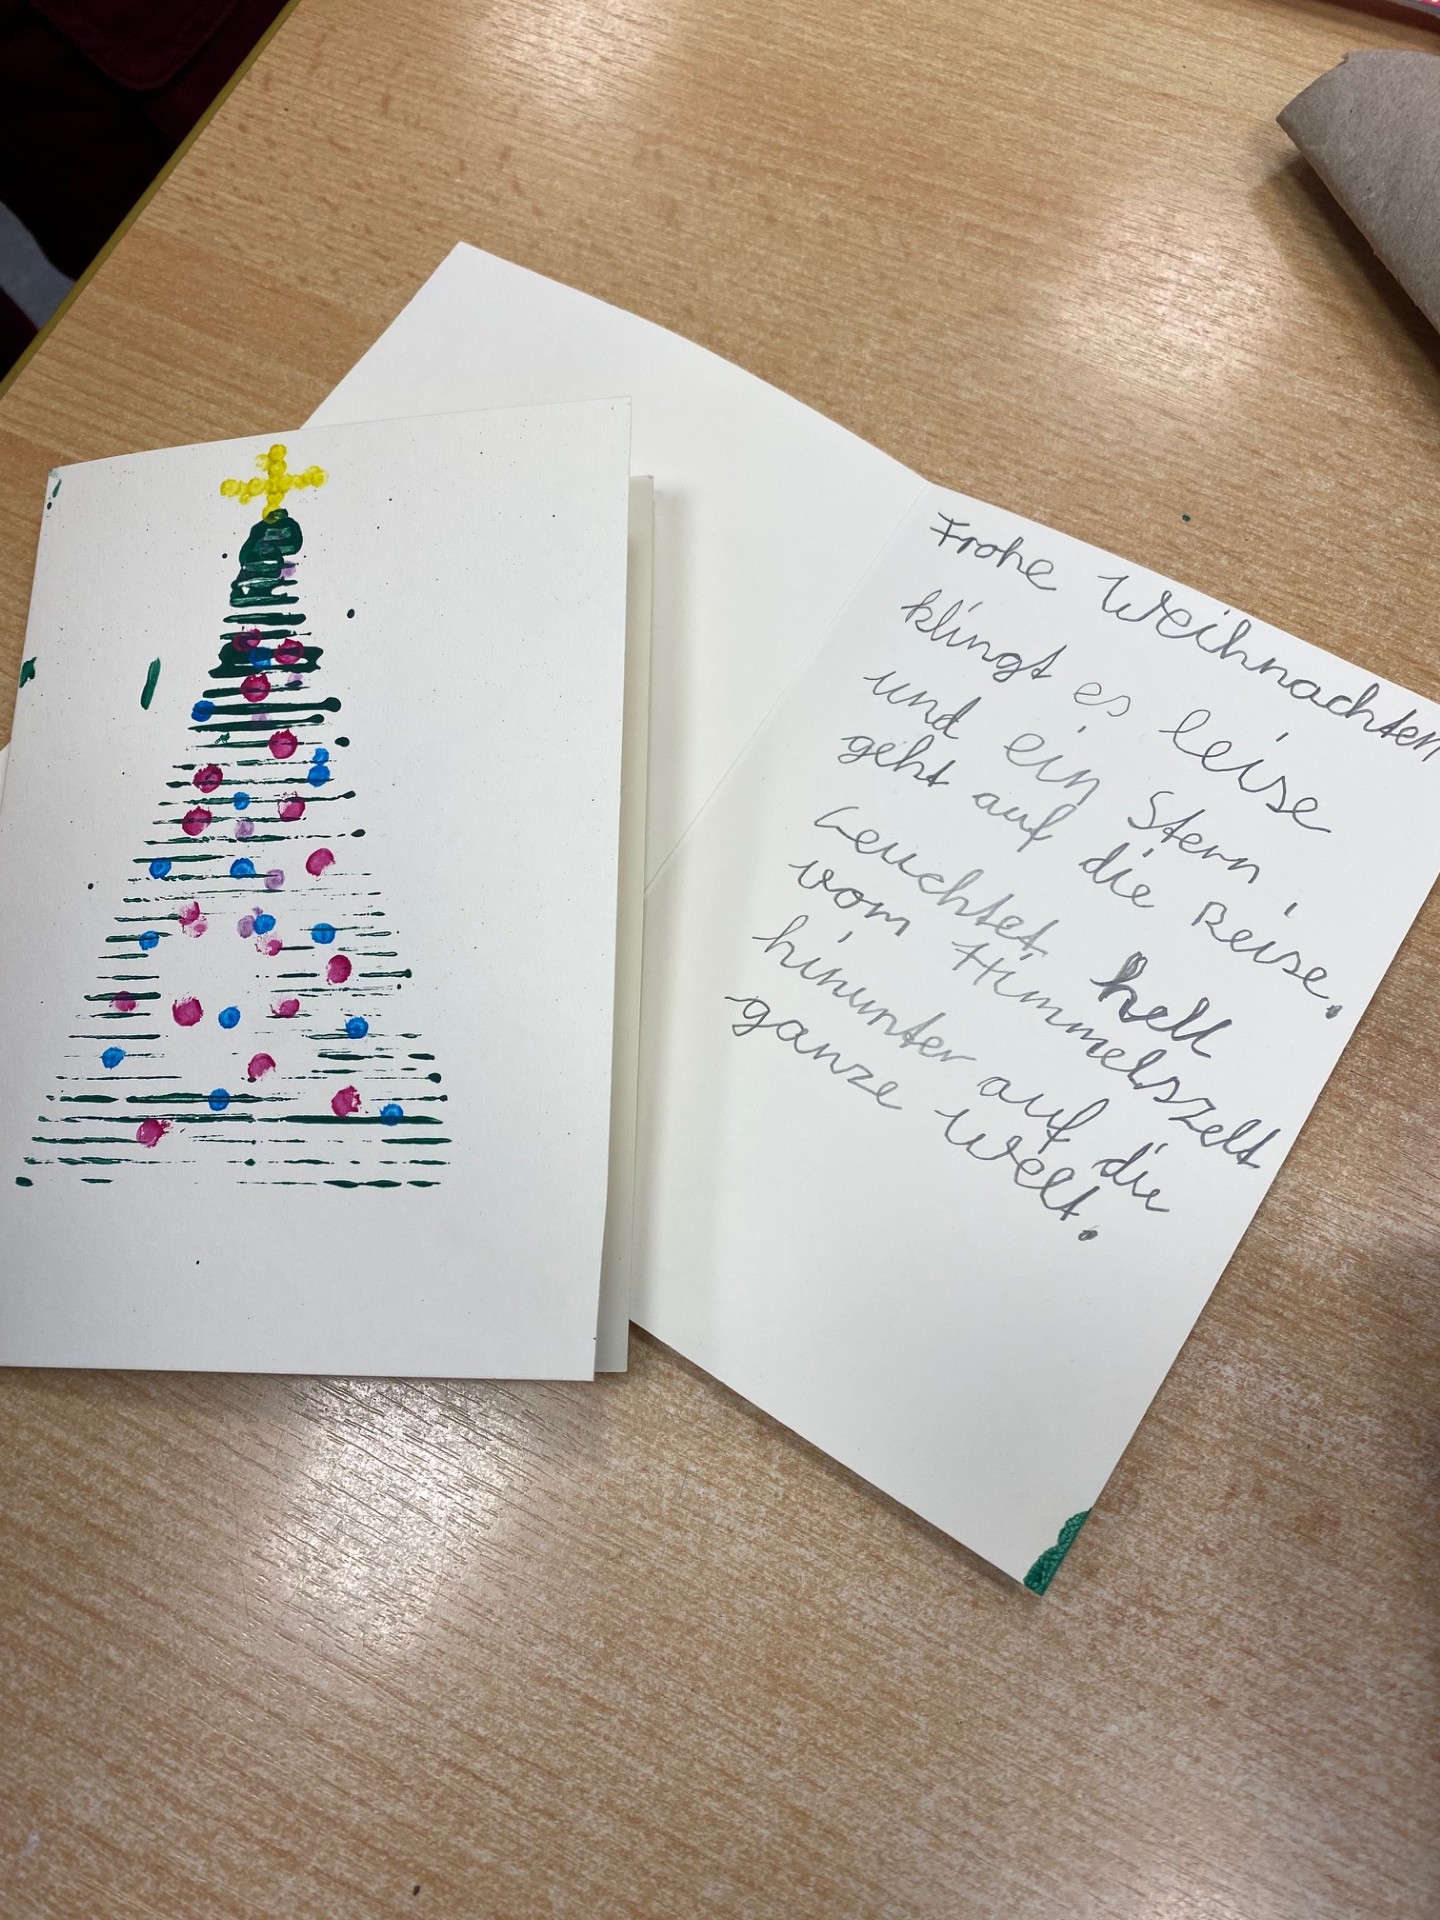 Frohe Weihnachten
klingt es leise
und ein Stern
geht auf die Reise.
Leuchtet hell
vom Himmelszelt
hinunter auf die
ganze Welt.